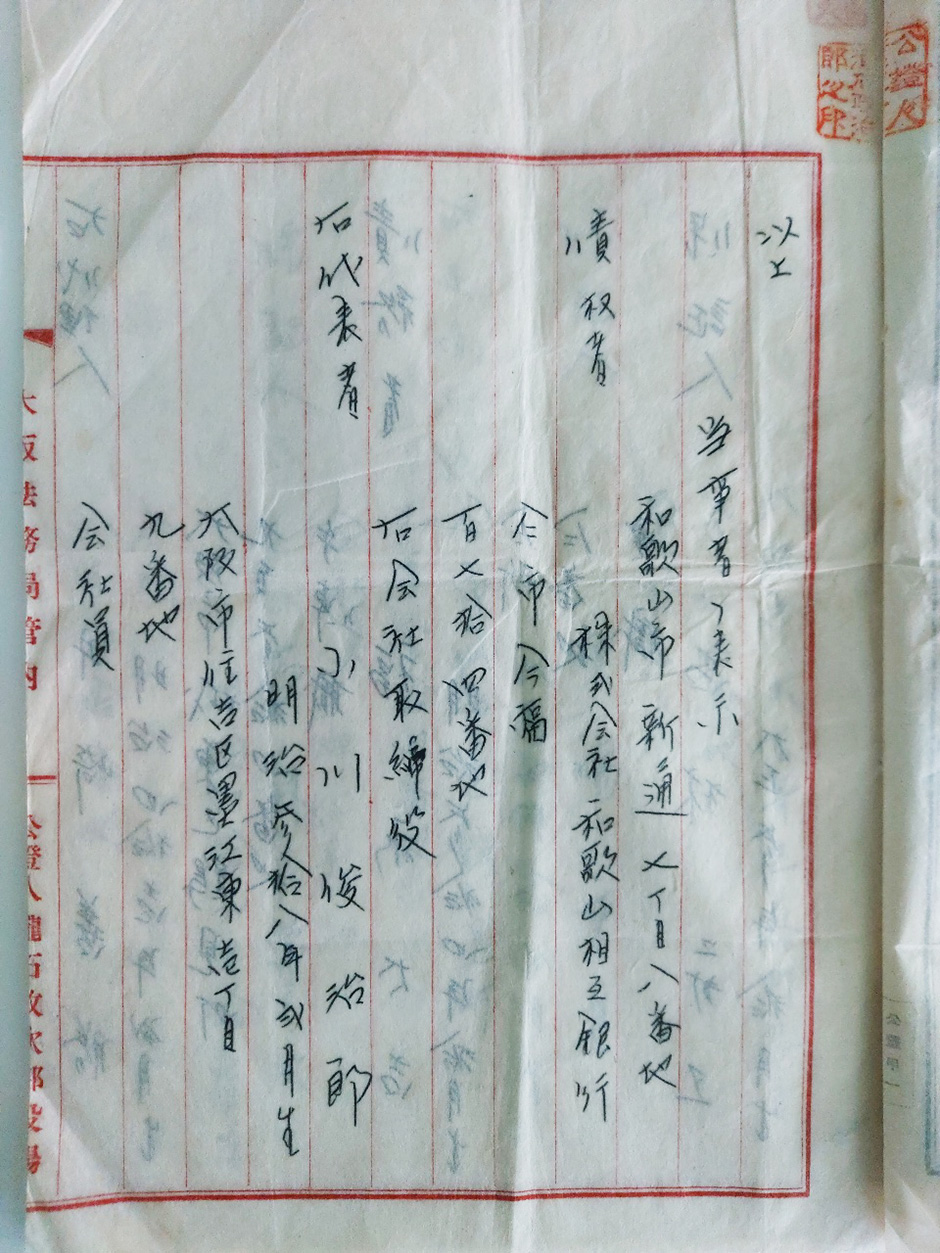 以上
当事者ノ表示
和歌山市新通七丁目八番地
債权者 株式会社和歌山相互銀行
仝市今福
百七拾四番地
右会社取締役
右代表者 小川俊治郎
明治参拾八年弍月生
大阪市住吉区墨江東壱丁目
九番地
会社員
大阪法務局管内
公證人瀧石政次郎役場
公證人
郎之印